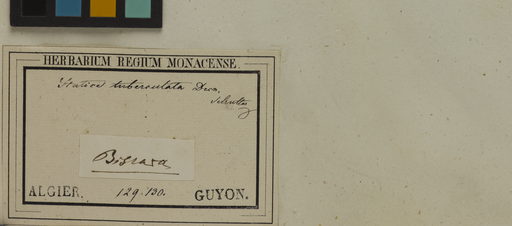 HERBARIUM REGIUM MONACENSE.
Statice tuberculata
Biscara
ALGIER. 129-130. GUYON.